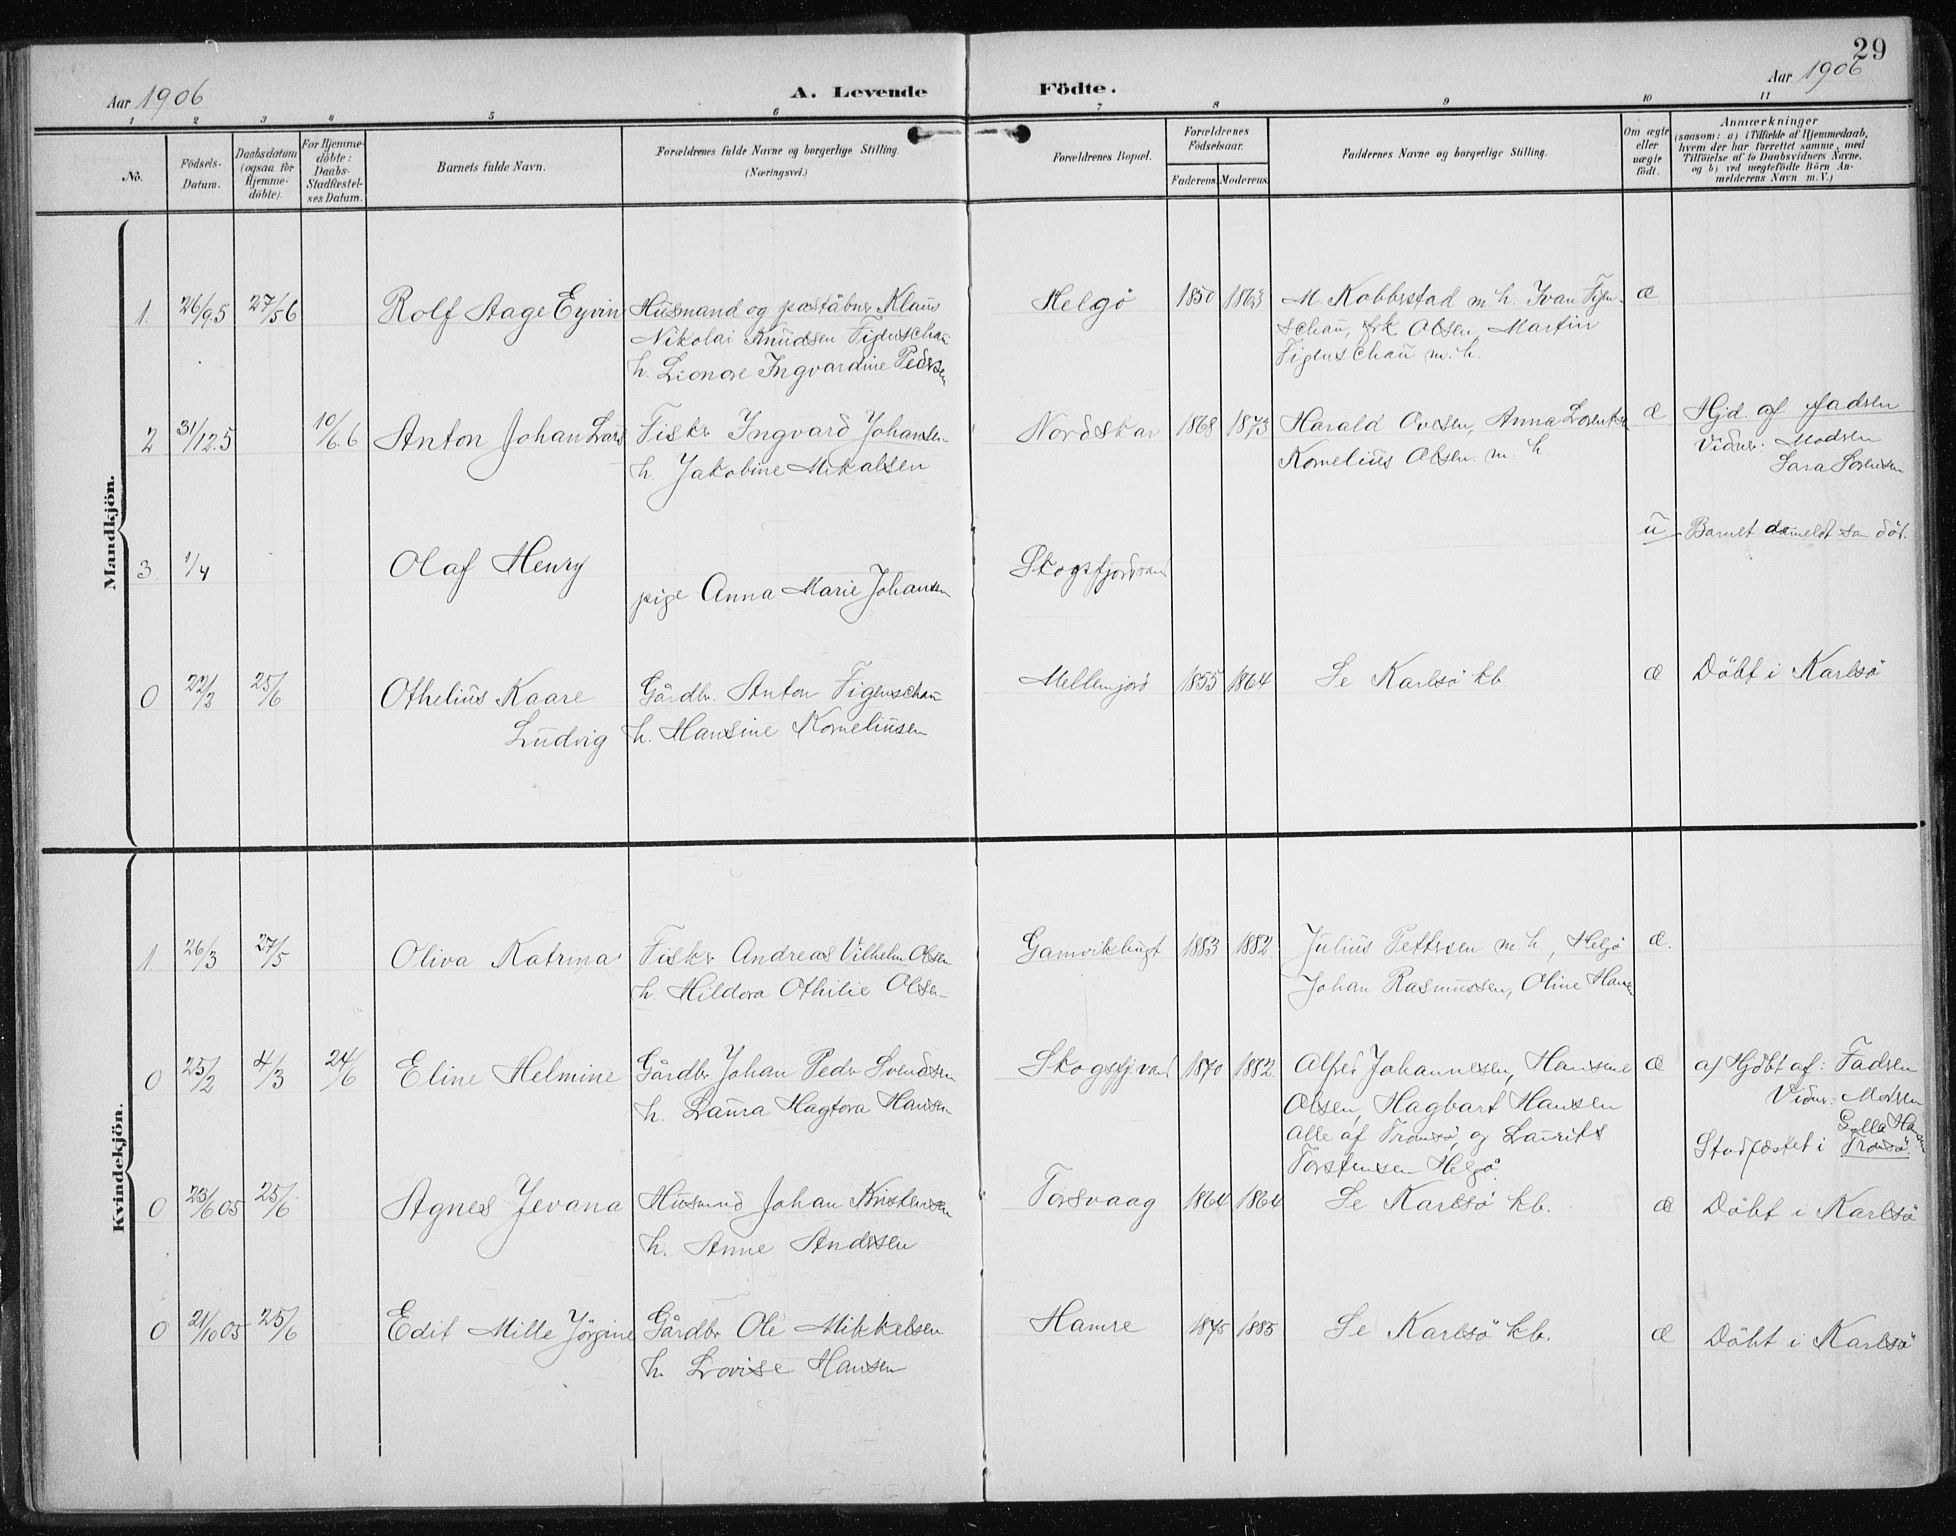 29
Aar 1906
A. Levende
Födte.
Aar 1906
1 2 3 4 5 6 7 8 9 10 11
No.
Födsels-
Datum.
Daabsdatum
(ogsaa for
Hjemme-
döbte).
For Hjemme-
döbte:
Daabs-
Stadfæstel-
ses Datum.
Barnets fulde Navn.
Forældrenes fulde Navne og borgerlige Stilling.
(Næringsvei.)
Forældrenes Bopæl.
Forældrenes
Födselsaar.
Faderens. Moderens.
Faddernes Navne og borgerlige Stilling.
Om ægte
eller
uægte
födt.
Anmærkninger
(saasom: a) i Tilfælde af Hjemmedaab,
hvem der har forrettet samme, med
Tilföielse af to Daabsvidners Navne,
og b) ved uægtefödte Börn An-
melderens Navn m. V.)
Mandkjön.
1. 26/9.5 27/5 6 Rolf Aage Eyvin Husmand og postaabner Klaus Helgö 1850 1863 M. Kobberstad m. h. Ivan Figen- æ
Nikolai Knudsen Figenschau schau, frk Olsen, Martin
h. Leonore Ingvardine Pedersen Figenschau m. h.
2 31/12.5 10/6.6 Anton Johan Lars Fisker Ingvard Johansen Nordskar 1868 1873 Harald Ovesen, Anna Lorentsen æ Hjd. af Faderen
h. Jakobine Mikalsen Kornelius Olsen m. h. Vidner: Moderen
Sara Sörensen
3 1/4 Olaf Henry Skogsfjordvand u Barnet anmeldt som döbt.
pige Anna Marie Johansen
0 22/2 25/6 Othelius Kaare Gårdbr. Anton Figenschau Mellemjord 1855 1864 Se Karlsö kb æ Döbt i Karlsö
Ludvig h. Hansine Korneliussen
Kvindekjön.
1 26/3 27/5 Oliva Katrina Fisker Andreas Vilhelm Olsen Gamvikbugt 1883 1882 Julius Pettersen m h, Helgö æ.
h. Hildora Othilie Olsen Johan Rasmussen, Oline Hansen
0 25/2 4/3 24/6 Eline Helmine Gårdbr Johan Peder Svendsen Skogsfjvand 1870 1882. Alfred Johannesen, Hansine æ a/ Hjdöbt af: Faderen
h. Laura Hagtora Hansen Olsen, Hagbart Hansen Vidner: Moderen
alle af Tromsö, og Laurits Hansen
Torstensen Helgö. Stadfæstet i Tromsö.
0 23/6 05 25/6 Agnes Jevana Husmand Johan Kristensen Torsvaag 1864 1864 Se Karlsö kb. æ Döbt i Karlsö
h. Anne Andersen
0 21/10 05 25/6 Edit Mille Jörgine Gårdbr Ole Mikkelsen Hamre 1875 1885 Se Karlsö kb. æ Döbt i Karlsö
h. Lovise Hansen